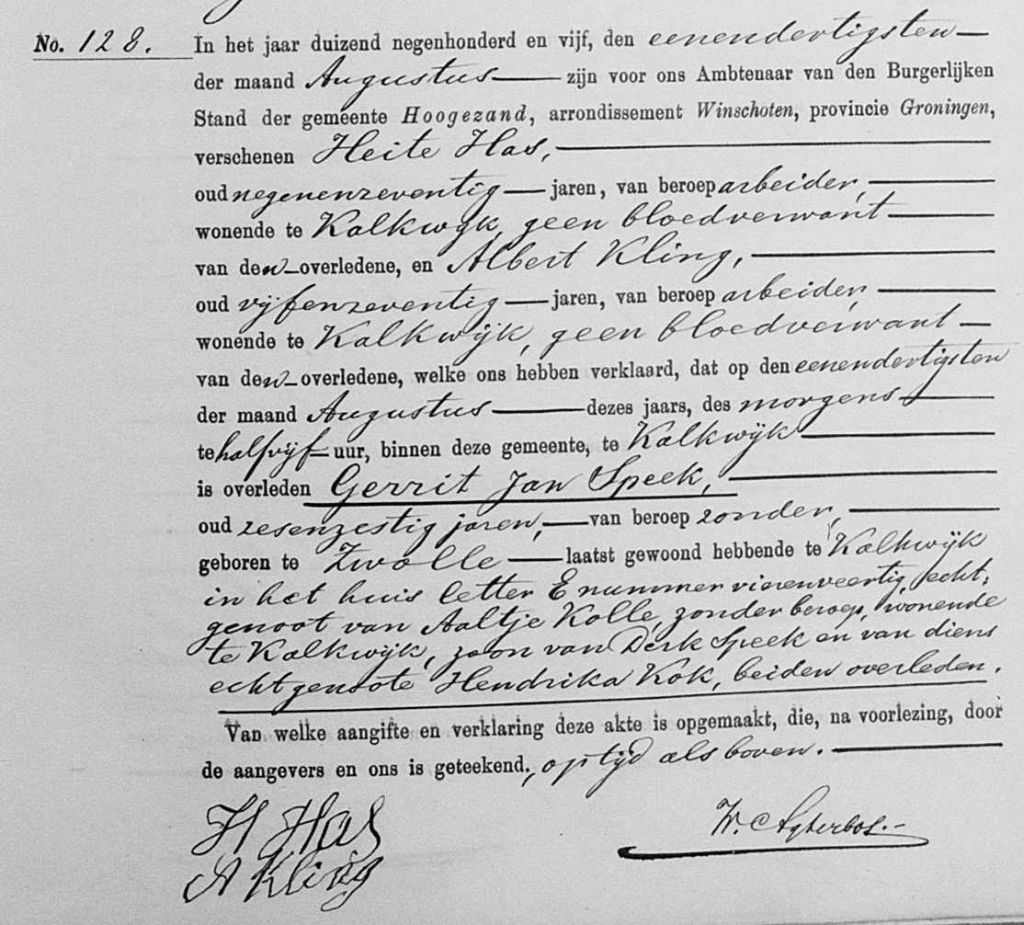 No. 128. In het jaar duizend negenhonderd en vijf, den eenendertigsten
der maand Augustus zijn voor ons Ambtenaar van den Burgerlijken
Stand der gemeente Hoogezand, arrondissement Winschoten, provincie Groningen,
verschenen Heite Has,
oud negenenzeventig jaren, van beroep arbeider,
wonende te Kalkwyk, geen bloedverwant
van den overledene, en Albert Kling,
oud vijfenzeventig jaren, van beroep arbeider,
wonende te Kalkwijk, geen bloedverwant
van den overledene, welke ons hebben verklaard, dat op den eenendertigsten
der maand Augustus dezes jaars, des morgens
te halfvijf uur, binnen deze gemeente, te Kalkwijk
is overleden Gerrit Jan Speek,
oud zesenzestig jaren, van beroep zonder,
geboren te Zwolle laatst gewoond hebbende te Kalkwijk
in het huis letter E nummer vierenveertig, echt-
genoot van Aaltje Kolle, zonder beroep, wonende
te Kalkwijk, zoon van Derk Speek en van diens
echtgenoote Hendrika Kok, beiden overleden.
Van welke aangifte en verklaring deze akte is opgemaakt, die, na voorlezing, door
de aangevers en ons is geteekend, op tijd als boven.
H Has
A Kling
W. Agterbos.